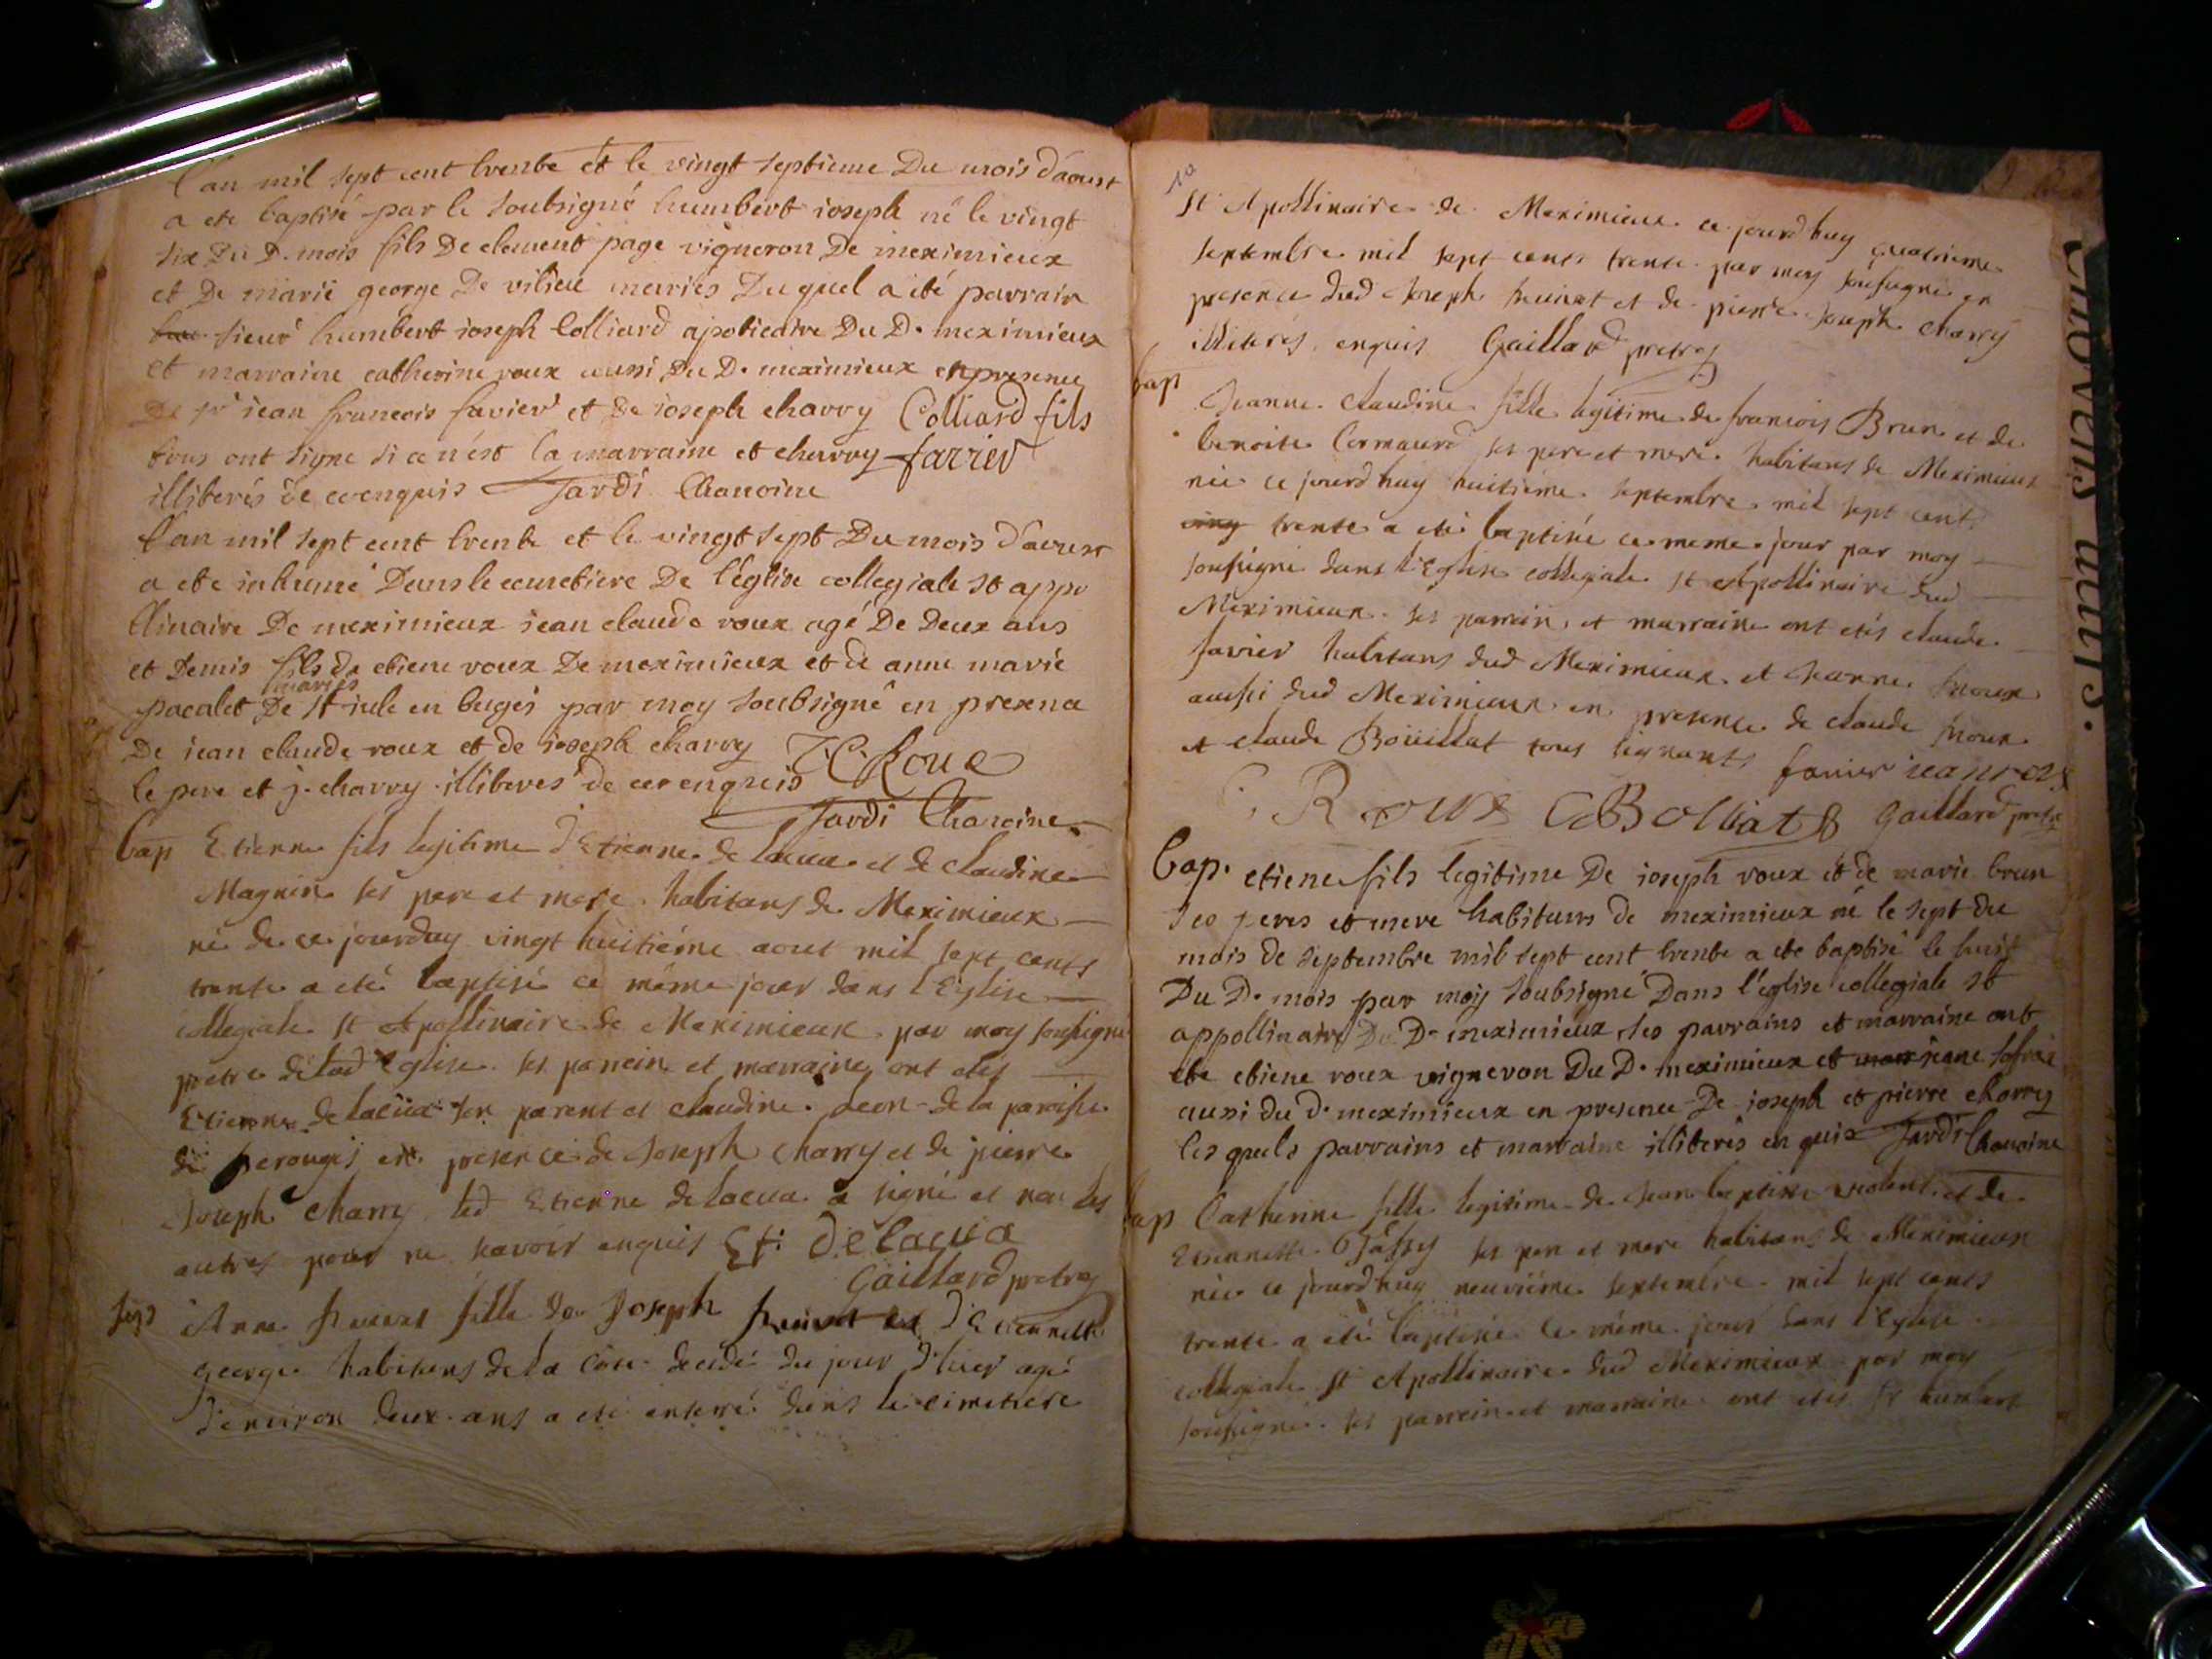 L'an mil sept cent trente et le vingt septieme Du mois d'aoust
a ete baptisé par le soubsigné humbert ioseph né le vingt
six Du D. mois fils De clement page vigneron De meximieux
et De marie george De vilieu mariés Duquel a été parrain
sieur humbert ioseph Colliard apoticaire Du D. meximieux
et marraine catherine roux aussi Du D. meximieux en presence
De sr iean francois favier et de ioseph charry Colliard fils
tous ont signe si ce n'est la marraine et charry favier
illiterés de ce enquis Jardi Chanoine
L'an mil sept cent trente et le vingt sept Du mois d'aoust
a ete inhumé Dans le cemetiere De l'église collegiale st appo
llinaire De meximieux iean claude roux agé De Deux ans
et Demis fils de etiene roux De meximieux et de anne marie
mariés
pacalet De st iule en bugei par moy soubsigné en presence
De iean claude roux et de ioseph charry J C Roux
le pere et j. charry illiterés de ce enquis
Jardi Chanoine
bap Etienne fils legitime d'Etienne de lacua et de claudine
Magnin ses pere et mere habitans de Meximieux
né de ce jourduy vingt huitiéme aout mil sept cents
trente a eté baptisé ce même jour dans l'Eglise
collegiale st Apollinaire de Meximieux par moy sousigné
pretre de lad Eglise. ses parrein et marraine ont etés
Etienne de lacua son parent et claudine de la paroisse
de perouges en presence de Joseph charry et de pierre
Joseph charry led Etienne de lacua a signé et non les
autres pour ne savoir enquis Et: Delacua
Gaillard pretre
Anne fille de Joseph d'Etiennette
george habitans de la Côte decedé du jour d'hier agé
d'environ deux ans a eté enterré dans le cimetiere
10
st Apollinaire de Meximieux ce jourd'huy quatriéme
septembre mil sept cents trente par moy sousigné en
presence dud Joseph et de pierre Joseph charry
illiterés enquis Gaillard pretre
bap
Jeanne Claudine fille legitime de francois Brun et de
benoite Cormaurd ses pere et mere habitans de Meximieux
née ce jourd'huy huitiéme septembre mil sept cents
cinq trente a eté baptisée ce meme jour par moy
sousigné dans l'Eglise collegiale st Apollinaire dud
Meximieux. ses parrein et marraine ont etés claude
favier habitans dud Meximieux et Jeanne
aussi dud Meximieux en presence de claude
et claude Boüillat tous signants favier iean roux
C Roux C Bolliat Gaillard pretre
bap. etiene fils legitime De ioseph roux et de marie brun
ses peres et mere habitans de meximieux né le sept du
mois de septembre mil sept cent trente a ete baptisé le huit
Du D. mois par moy soubsigné Dans l'eglise collegiale st
appollinaire Du D. meximieux ses parrains et marraine ont
ete etiene roux vigneron Du D. meximieux et jeane
aussi du d. meximieux en presence De ioseph et pierre charry
les quels parrains et marraine illiterés enquis Jardi Chanoine
bap Catherine fille legitime de Jean baptiste et de
Etiennette ses pere et mere habitans de Meximieux
née ce jourd'huy neuviéme septembre mil sept cents
trente a eté baptisée le même jour dans l'Eglise
collegiale st Apollinaire dud Meximieux par moy
sousigné. ses parrein et marraine ont etés sr humbert